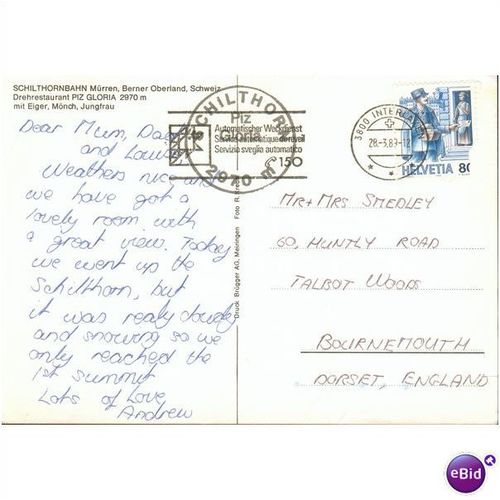 SCHILTHORNBAHN Mürren, Berner Oberland, Schweiz
Drehrestaurant PIZ GLORIA 2970 m
mit Eiger, Mönch, Jungfrau
Dear Mum, Dad
and Louise
Weathers nice and
we have got a
lovely room with
a great view. Today
we went up the
Schilthorn, but
it was really cloudy
and snowing so we
only reached the
1st summit
Lots of Love
Andrew
SCHILTHORN
Piz
Gloria
2970 m
Automatischer Weckdienst
Service automatique de réveil
Servizio sveglia automatico
150
3800 INTERLAKEN
28.-3.89-12
HELVETIA 80
Druck: Brügger AG, Meiringen Foto R.
MR + MRS SMEDLEY
60, HUNTLY ROAD
TALBOT WOODS
BOURNEMOUTH
DORSET, ENGLAND
eBid